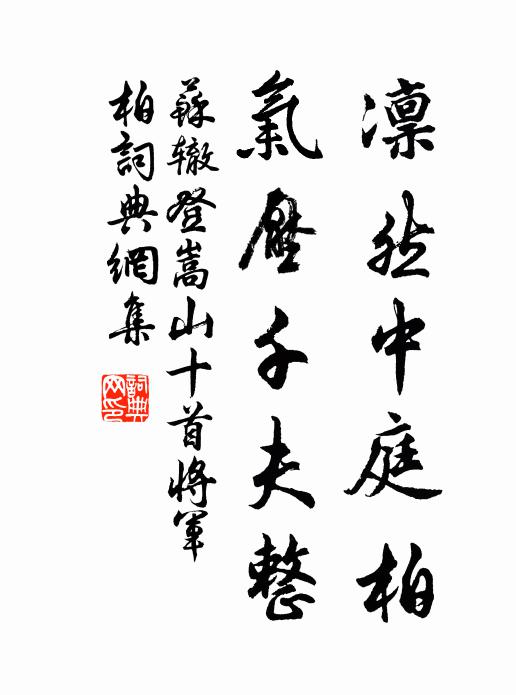 凛然中庭柏
氣壓千夫整
蘇辙登嵩山十首將軍
柏詞典網集
詞典
网印